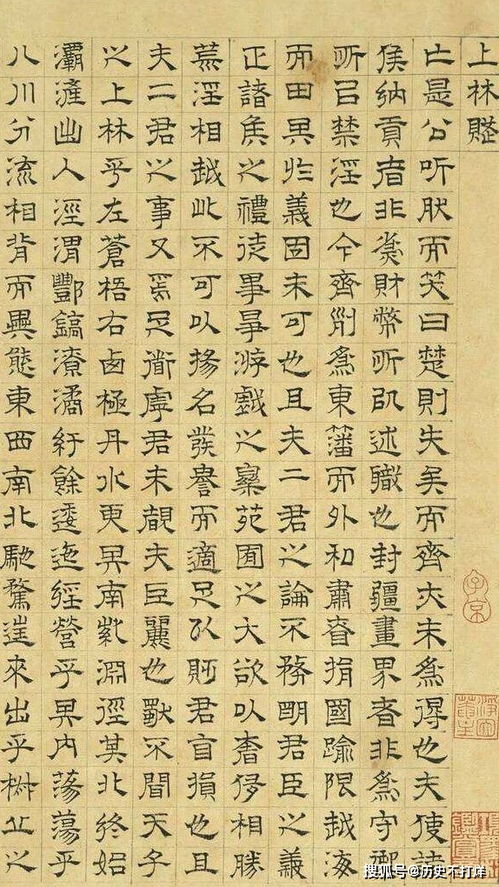 上林賦
亡是公听肰而笑曰楚則失矣而齊亦未爲得也夫使諸
侯納貢者非爲財幣所以述職也封疆畫界者非爲守禦
所以禁淫也今齊列爲東藩而外和肅眘捐國踰限越海
而田其於義固未可也且夫二君之論不務明君臣之義
正諸侯之禮徒事爭游戲之樂苑囿之大欲以奢侈相勝
荒淫相越此不可以揚名發譽而適足以貶君自損也且
夫二君之事又焉足道虖君未覩夫巨麗也獨不聞天子
之上林乎左蒼梧右西極丹水更其南紫淵徑其北終始
灞滻出入涇渭酆鎬潦潏紆餘逶迤經營乎其內蕩蕩乎
八川分流相背而異態東西南北馳騖往來出乎椒丘之
子京
搜狐号@历史不打烊